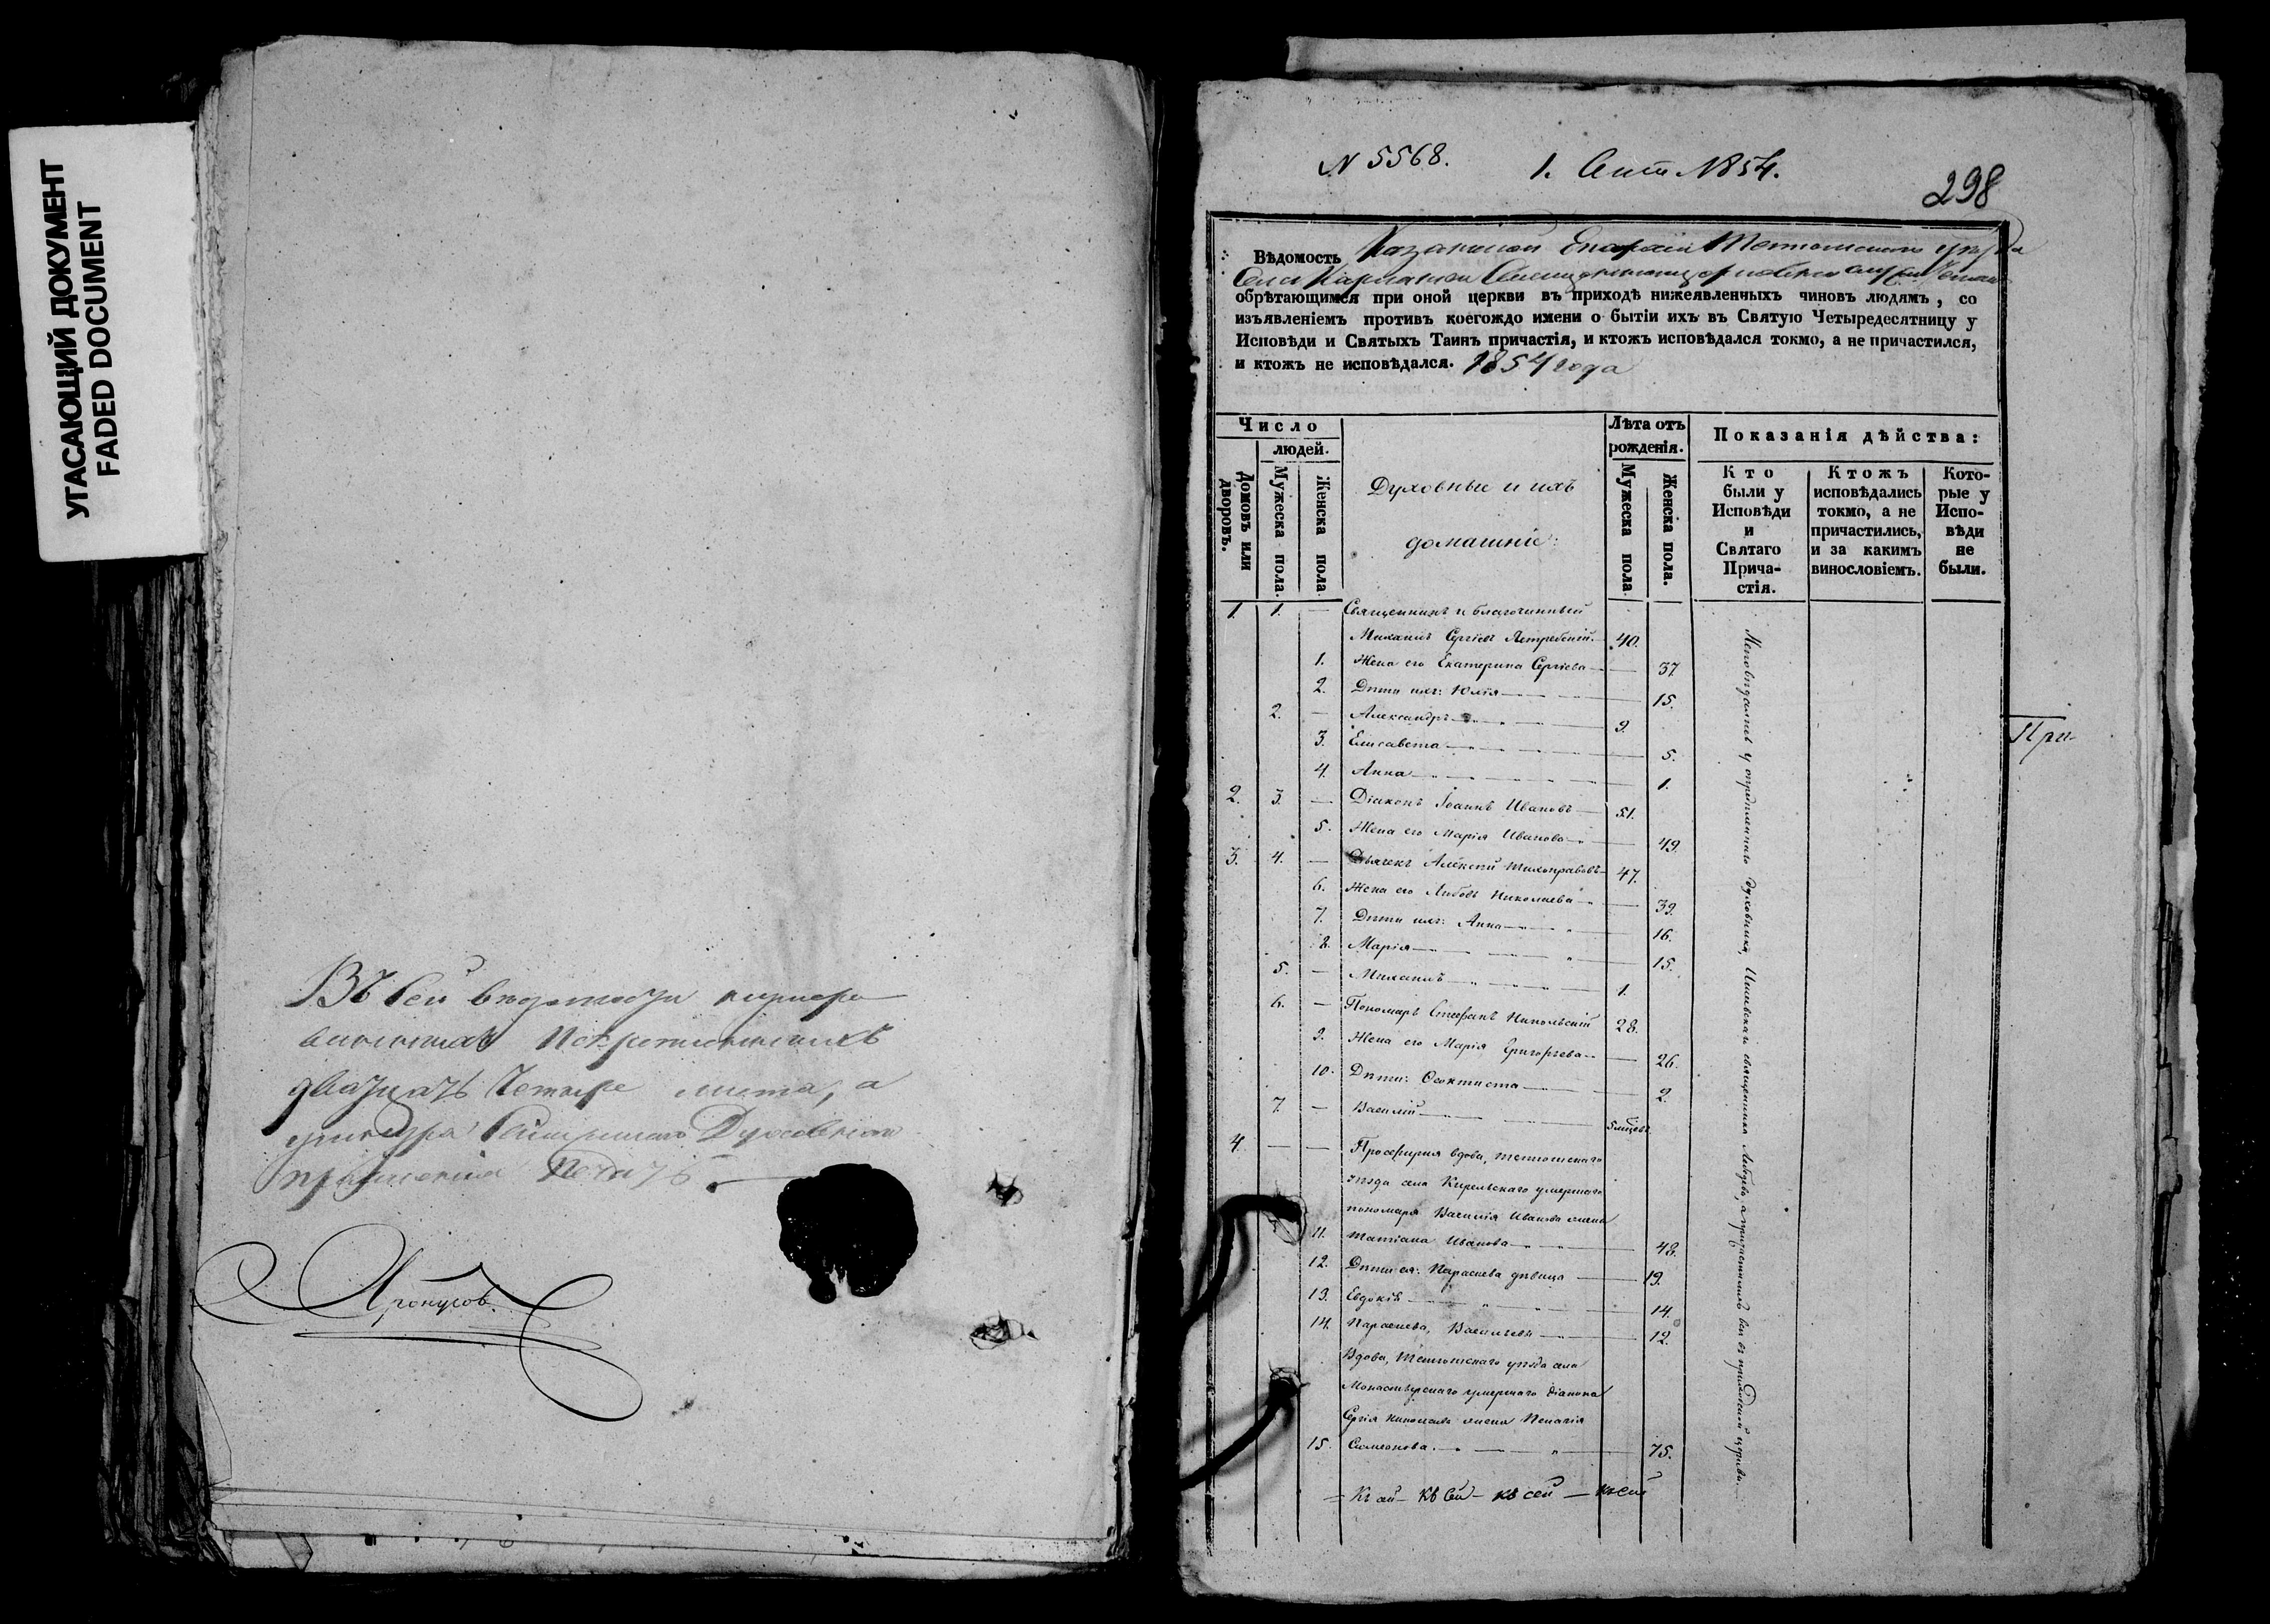 УГАСАЮЩИЙ ДОКУМЕНТ
FADED DOCUMENT
Въ сей
двадцать Четыре листа, а
Духовнаго
правленія Печать
N 5568. 1. 1854.
298
Вѣдомость Казанской Епархіи Тетюшскаго уѣзда
Села
обрѣтающимся при оной церкви въ приходѣ нижеявленныхъ чиновъ людямъ, со
изъявленіемъ противъ коегождо имени о бытіи ихъ въ Святую Четыредесятницу у
Исповѣди и Святыхъ Таинъ причастія, и ктожъ исповѣдался токмо, а не причастился,
и ктожъ не исповѣдался. 1854 года
Число
людей.
Домовъ или дворовъ.
Мужеска пола.
Женска пола
Духовные и ихъ
домашніе:
Лѣта отъ
рожденія.
Мужеска пола
Женска пола.
Показанія дѣйства:
Кто
были у
Исповѣди
и
Святаго
Прича-
стія.
Ктожъ
исповѣдались
токмо, а не
причастились,
и за какимъ
винословіемъ.
Кото-
рые у
Испо-
вѣди
не
были.
1. 1. — Священникъ и благочинный
Михаилъ Сергіевъ Ястребскій 40.
1. Жена его Екатерина Сергіева 37
2. Дѣти ихъ: Юлія 15.
2. — Александръ 9.
3. Елисавета 5.
4. Анна 1.
2. 3. — Діаконъ Іоаннъ Ивановъ 51.
5. Жена его Марія Иванова 49.
3. 4. — Дьячекъ Алексѣй Тихонравовъ 47.
6. Жена его Любовь Николаева 39.
7. Дѣти ихъ: Анна 16.
8. Марія 15.
5. — Михаилъ 1.
6. — Пономарь Стефанъ Никольскій 28.
9. Жена его Марія Григорьева 26.
10. Дѣти: Ѳеоктиста 2.
7. — Василій 5 мѣсяц.
4. — — Просфирня вдова, тетюшскаго
уѣзда села Кирельскаго умершаго
пономаря Василія Иванова жена
11. Татіана Иванова 48.
12. Дѣти ея: Параскева дѣвица 19.
13. Евдокія 14.
14. Параскева, Васильевы 12.
Вдова, Тетюшскаго уѣзда села
Монастырскаго умершаго діакона
Сергія жена Пелагія
15. Симеонова. 75.
Исповѣдались у опредѣленнаго духовника, священника Лебедева, а причастились все въ приходской церкви.
При-